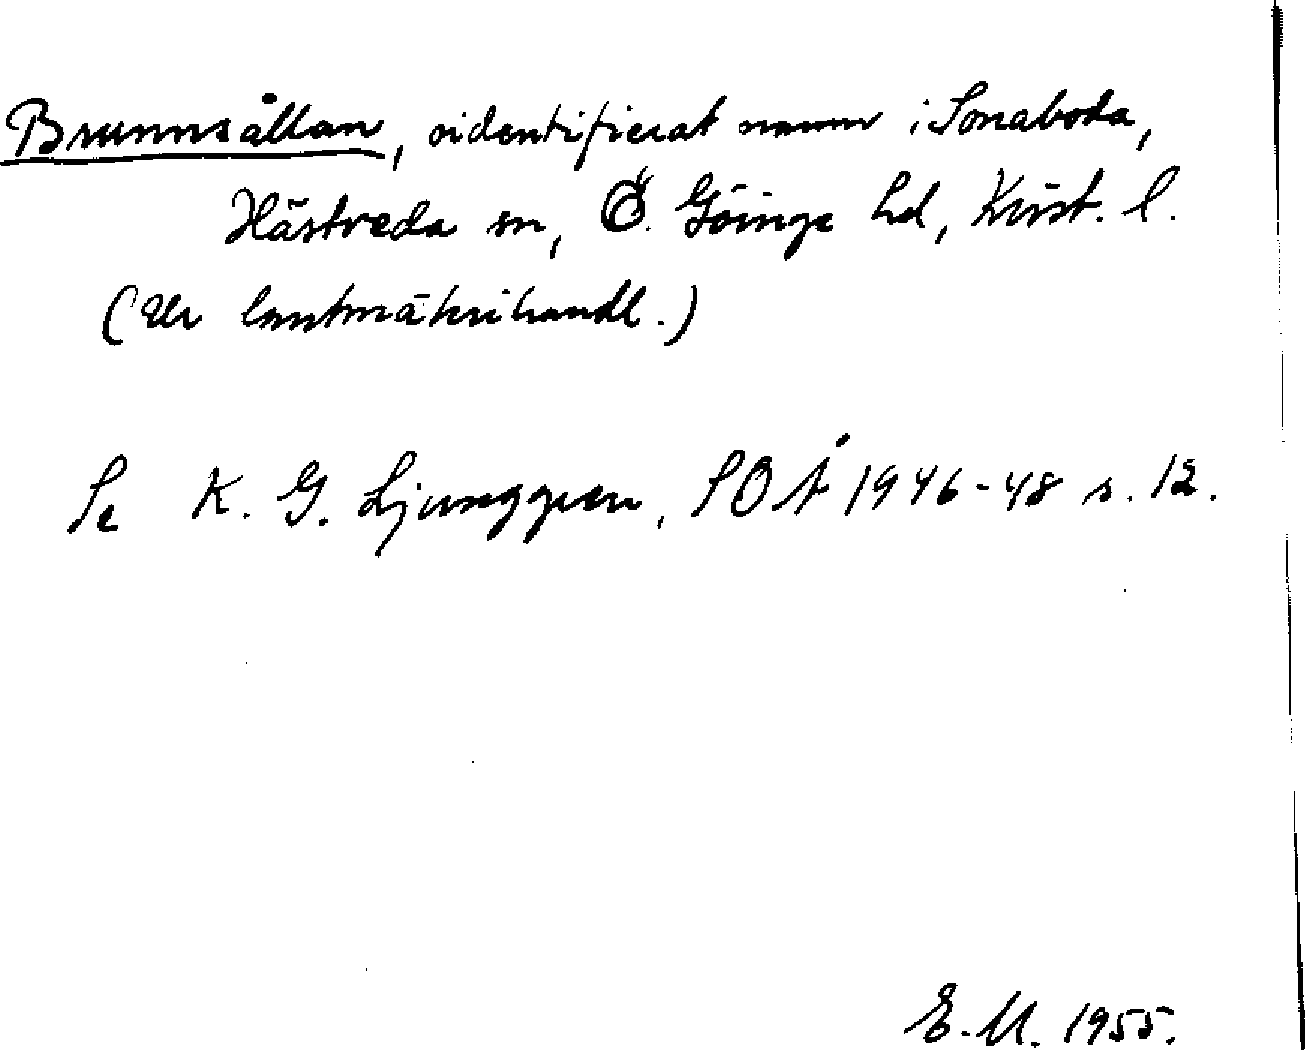 Brunnsåltan, oidentifierat namn i Sonaboda,
Hästveda sn, Ö. Göinge hd, Krist. l.
(Ur lantmäterihandl.)
Se K. G. Ljunggren, SOÅ 1946-48 s. 12.
E. M. 1955.